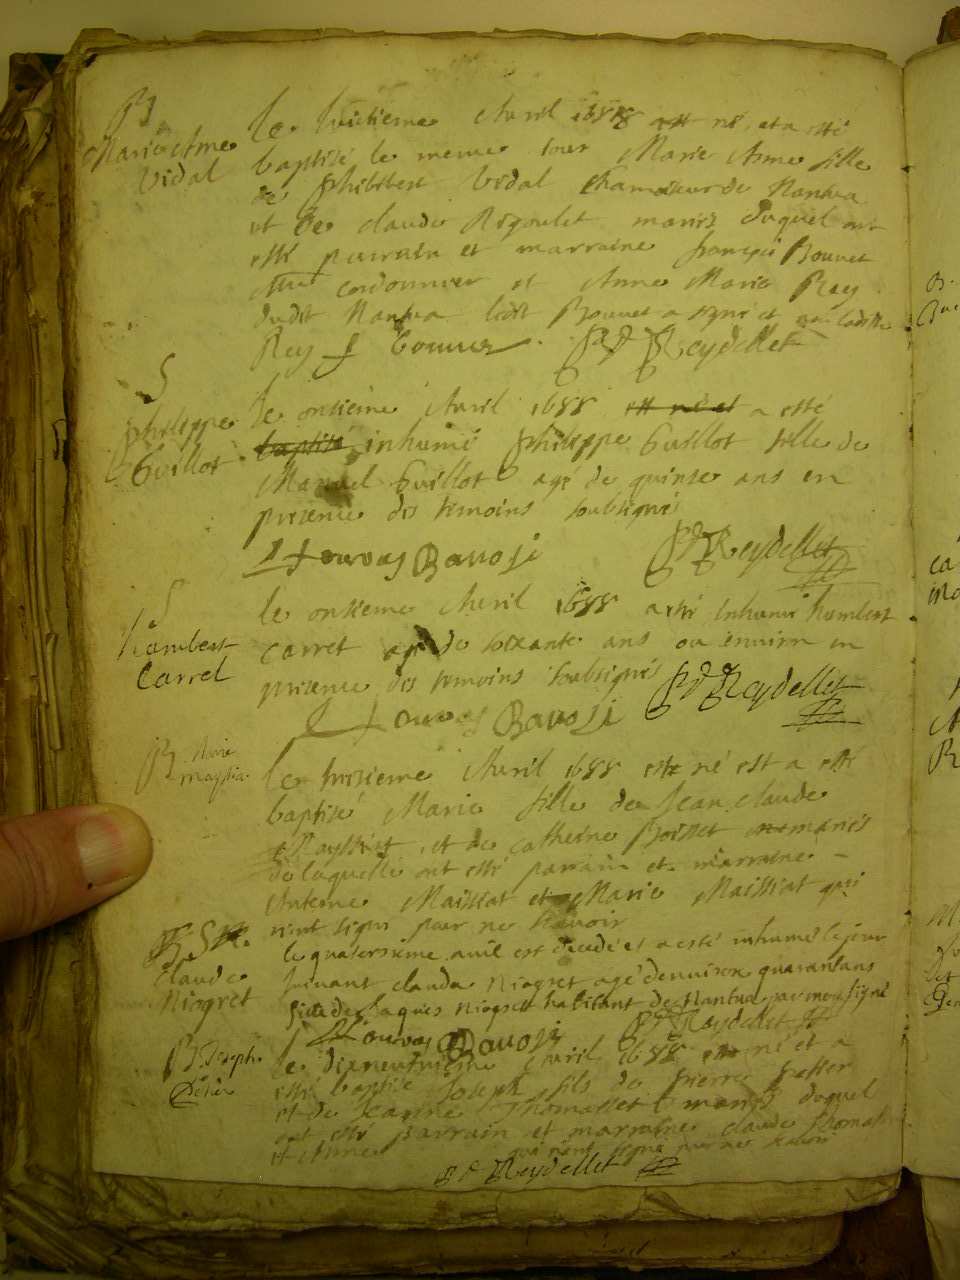 B
Marie Anne
Vidal
le huictieme Avril 1688 est né, et a esté
baptisé le meme jour Marie Anne fille
de Philibert Vidal chamoiseur de Nantua
et de claude Rigoulet mariés duquel ont
esté parrain et marraine françois Bonnet
cordonnier et Anne Marie Rey
dudit Nantua ledit Bonnet a signé et non ladite
Rey
P d Reydellet
S
philippe
Guillot
le onzieme Avril 1688 est né et a esté
baptisé inhumé philippe Guillot fille de
Manuel Guillot agé de quinze ans en
presence des temoins soubsignés
P d Reydellet
S
humbert
Carrel
le onzieme Avril 1688 a esté inhumé humbert
carret agé de soixante ans ou environ en
presence des temoins soubsignés
P d Reydellet
B Marie
le trezieme Avril 1688 est né est a esté
baptisé Marie fille de Jean claude
et de catherine Boisset mariés
de laquelle ont esté parrain et marraine
Antoine Maissiat et Marie Maissiat qui
n'ont signé pour ne scavoir
S
claude
Niogret
le quatorzieme avril est decedé et a esté inhumé le jour
suivant claude Niogret agé d'environ quarant ans
fille de Jaques Niogret habitant de Nantua par moy signé
P d Reydellet
B Joseph
le dixneuvieme Avril 1688 est né et a
esté baptisé Joseph fils de pierre
et de Thomasset mariés duquel
ont esté parrain et marraine claude
et Anne qui n'ont signé pour ne scavoir
P d Reydellet